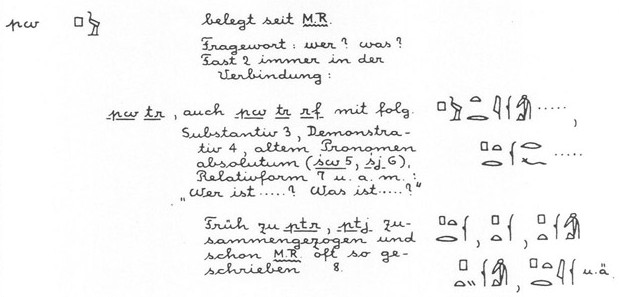 pw 𓊪𓅱 belegt seit M.R.
Fragewort: wer? was?
Fast 2 immer in der
Verbindung:
pw tr, auch pw tr rf mit folg.
Substantiv 3, Demonstra-
tiv 4, altem Pronomen
absolutum (sw 5, sj 6),
Relativform 7 u. a. m.:
"Wer ist .....? Was ist .....?"
Früh zu ptr, ptj zu-
sammengezogen und
schon M.R. oft so ge-
schrieben 8.
u.ä.